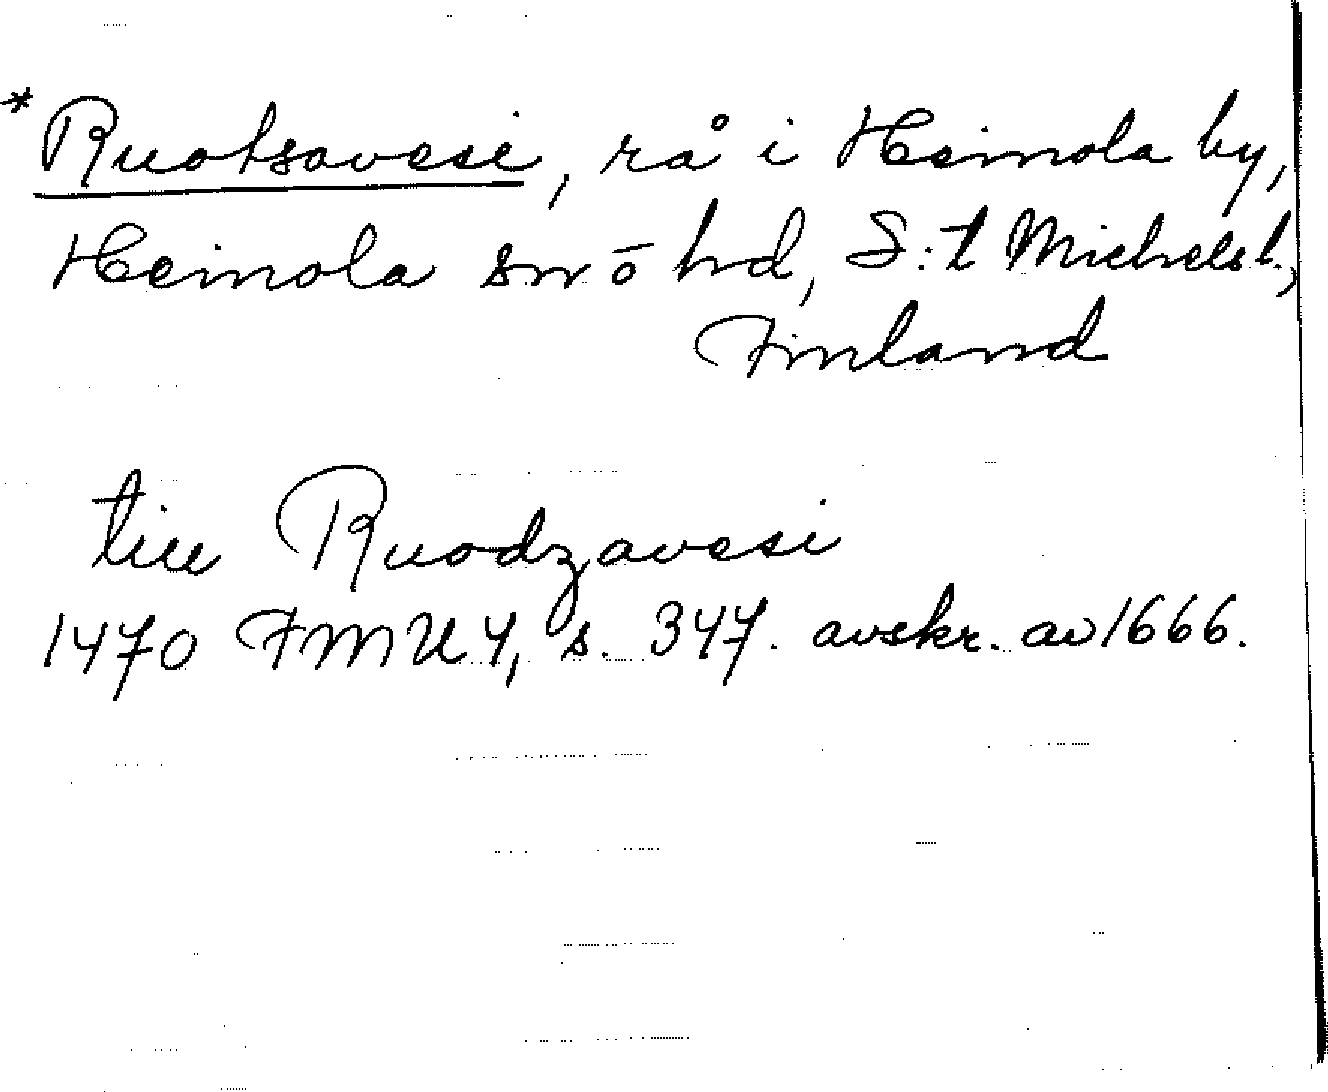 * Ruotsavesi, rå i Heinola by,
Heinola sn o hd, S:t Michels l.,
Finland
till Ruodzavesi
1470 FMU 4, s. 347. avskr. av 1666.